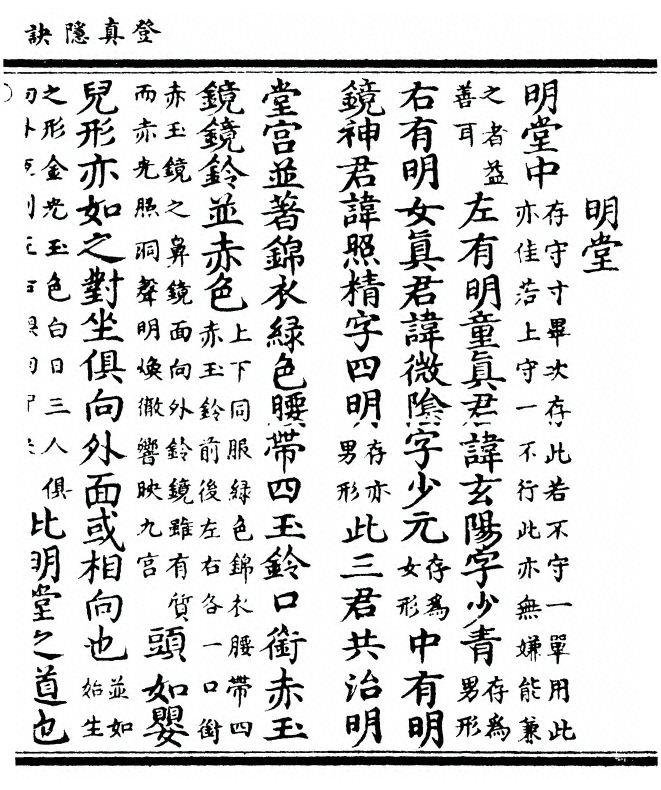 登真隱訣
明堂
明堂中存守寸畢次存此若不守一單用此
亦佳若上守一不行此亦無嫌能兼
之者益
善耳
左有明童真君諱玄陽字少青存為
男形
右有明女真君諱微陰字少元存為
女形
中有明
鏡神君諱照精字四明存亦
男形
此三君共治明
堂宮並著錦衣綠色腰帶四玉鈴口銜赤玉
鏡鏡鈴並赤色上下同服綠色錦衣腰帶四
赤玉鈴前後左右各一口銜
赤玉鏡之鼻鏡面向外鈴鏡雖有質
而赤光照洞聲明煥徹響映九宮
頭如嬰
兒形亦如之對坐俱向外面或相向也並如
始生
之形金光玉色白日三人俱
此明堂之道也